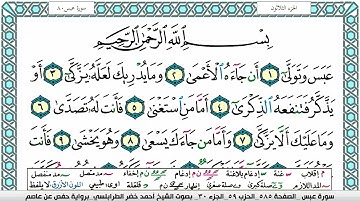 الجزء الثلاثون
سورة عبس ٨٠
بِسْمِ ٱللَّهِ ٱلرَّحْمَٰنِ ٱلرَّحِيمِ
عَبَسَ وَتَوَلَّىٰٓ ١ أَن جَآءَهُ ٱلْأَعْمَىٰ ٢ وَمَا يُدْرِيكَ لَعَلَّهُۥ يَزَّكَّىٰٓ ٣ أَوْ
يَذَّكَّرُ فَتَنفَعَهُ ٱلذِّكْرَىٰٓ ٤ أَمَّا مَنِ ٱسْتَغْنَىٰ ٥ فَأَنتَ لَهُۥ تَصَدَّىٰ ٦
وَمَا عَلَيْكَ أَلَّا يَزَّكَّىٰ ٧ وَأَمَّا مَن جَآءَكَ يَسْعَىٰ ٨ وَهُوَ يَخْشَىٰ ٩ فَأَنتَ
سورة عبس الصفحة ٥٨٥ الحزب ٥٩ الجزء ٣٠ بصوت الشيخ أحمد خضر الطرابلسي برواية حفص عن عاصم